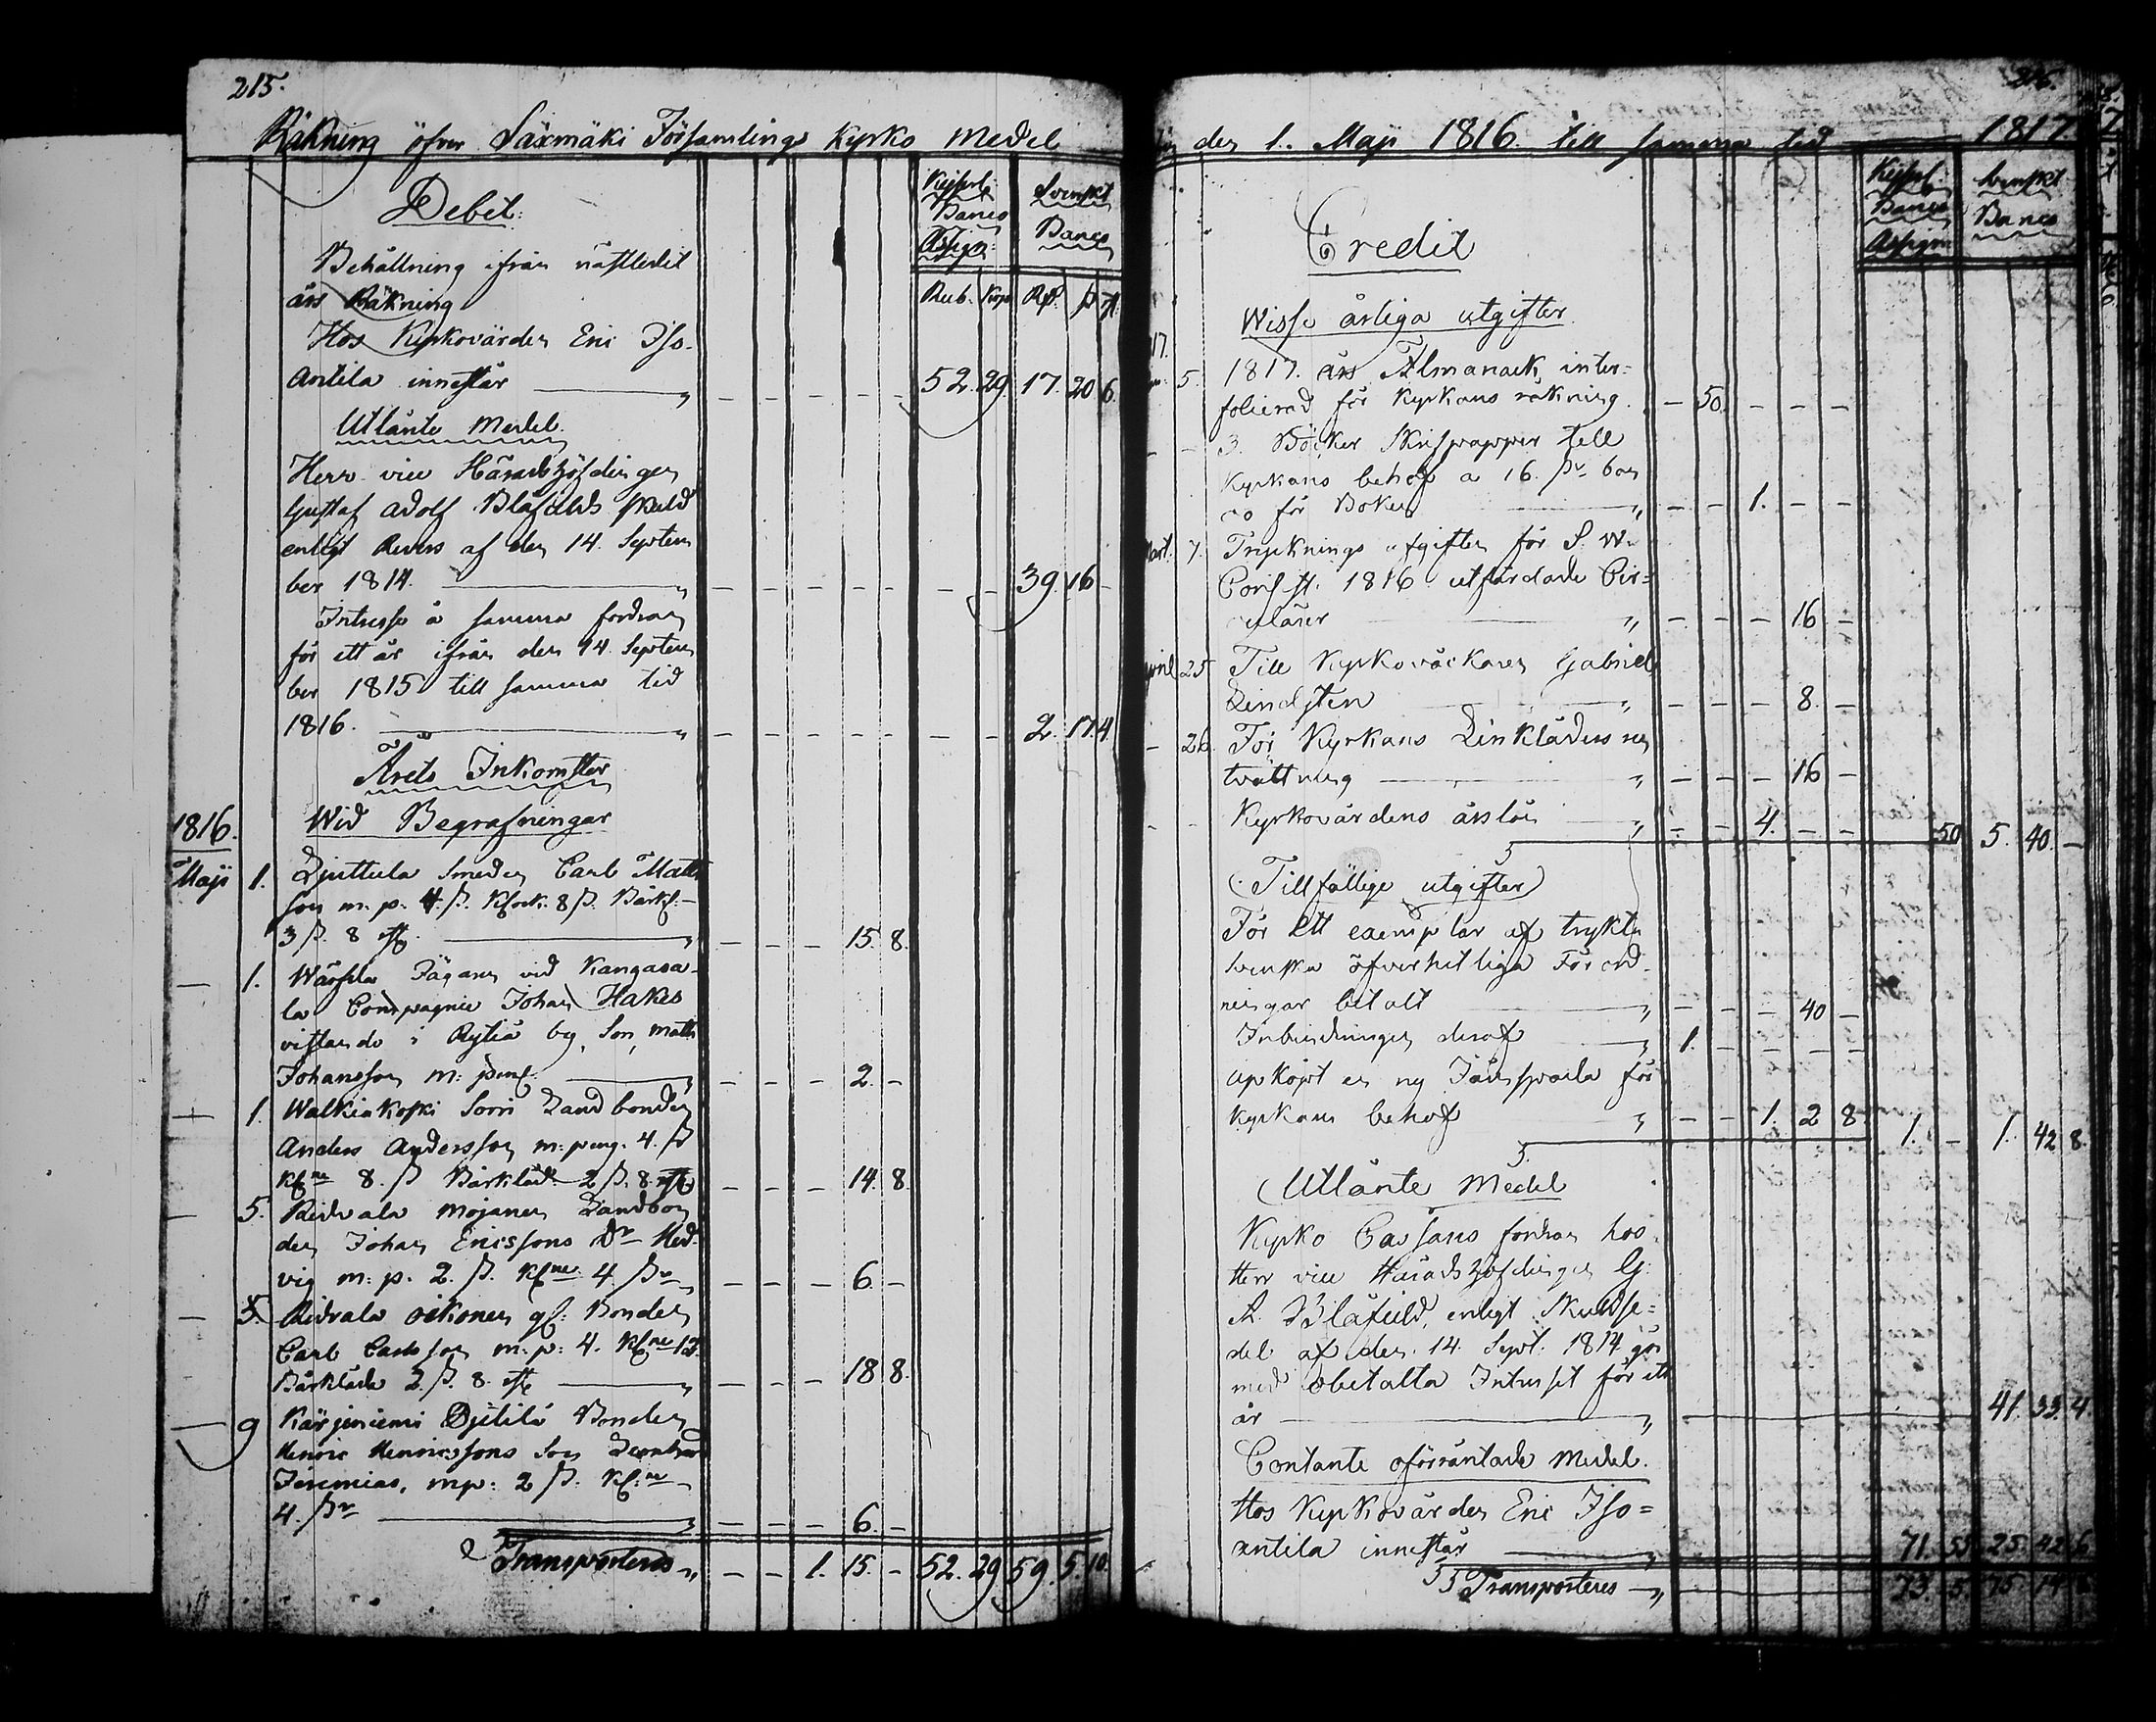 215.
Räkning öfver Säxmäki Församlings Kyrko Medel
Debet:
Kejserl: Banco Assign:
Svenskt Banco
Rub. Kop. Rd. ß rst.
Behållning ifrån nästledit
års Räkning
Hos Kyrkovärden Eric Iso-
Antila innestår — „ — — — — — 52. 29. 17. 20 6.
Utlånte Medel.
Herr vice Häradshöfdingen
Gustaf Adolf Blåfields skuld
enligt Revers af den 14. Septem
ber 1814. — „ — — — — — — — 39. 16 -
Intresse å samma fordran
för ett år ifrån den 14. Septem
ber 1815 till samma tid
1816. — „ — — — — — — — 2. 17. 4
Årets Inkomster
1816. Wid Begrafningar
Maji 1. Smeden Carl Matts
son m. p. 4. ß. Klock: 8 ß. Bårkl: -
3 ß. 8 rst — „ — — — 15. 8.
— 1. Jägaren vid Kangasa-
la Compagnie Johan Hakes
vistande i Rytiä by, Son Matts
Johansson m: peng. — „ — — — 2. -
— 1. Walkiakoski Sorri Landbonden
Anders Andersson m: peng. 4. ß
Kl:ne 8. ß Bårkläde 2 ß. 8. rst — — — 14. 8.
— 5. Ridvala Mojanen Landbon
den Johan Ericssons Dr Hed-
vig m: p. 2. ß. Kl:ne 4. ßr „ — — — 6. -
— 5. Ridvala Oikonen gl: Bonden
Carl Carlsson m. p: 4. Kl:ne 12.
Bårkläde 2. ß. 8. rst — „ — — — 18 8.
— 9 Kärjeniemi Bonden
Henric Henricssons Son
Jeremias, mp: 2 ß. Kl:ne
4. ßr — „ — — — 6. -
Transporteres „ — — 1. 15. - 52. 29 59. 5. 10.
216.
den 1. Maji 1816. till samma tid 1817
Credit
Kejserl. Banco Assign
Svenskt Banco
Wisse årliga utgifter
17.
5. 1817. års Almanack, inter=
folierad för Kyrkans räkning. — 50. — — —
— - 3. Böcker Skrifpapper till
Kyrkans behof a 16. ßr
för Boken „ — — 1. — —
Mart. 7. Trycknings afgiften för S. W.
Consist. 1816 utfärdade Cir=
culärer „ — — — 16. -
April 25. Till Kyrkoväckaren Gabriel
Lindsten „ — — — 8. -
— 26. För Kyrkans Linkläders
tvättning — „ — — — 16 -
- - Kyrkovärdens årslön — „ — — 4. — — 50 5. 40. -
(Tillfällige utgifter)
För ett exemplar af trykta
Svenska öfverhetliga Förord-
ningar betalt „ — — — 40 -
Inbindningen deraf „ 1. — — — —
upköpt en ny Järnspada för
Kyrkans behof „ — — 1. 2 8. 1. - 1. 42 8.
(Utlånte Medel
Kyrko Cassans fordran hos
Herr vice Häradshöfdingen G:
A. Blåfield, enligt Skuldse=
del af den 14. Sept. 1814 gör
med obetalta Intresset för ett
år — „ 41. 33. 4.
Contante oförräntade Medel.
Hos Kyrkovärden Eric Iso=
antila innestår — „ 71. 55 25. 42 6
Transporteres — „ 73. 5.